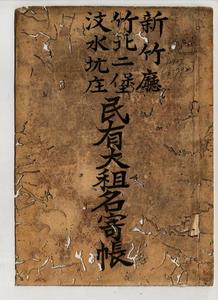 新竹廳
竹北二堡
汶水坑庄
民有大租名寄帳